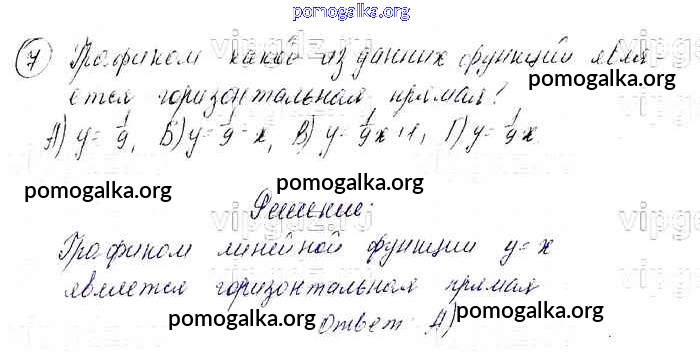 pomogalka.org
7 Графиком какой из данних функций явля-
ется горизонтальная прямая?
А) y = 1/9, Б) y = 1/9 - x, В) y = 1/9 x + 1, Г) y = 1/9 x
pomogalka.org
pomogalka.org
Решение:
Графиком линейной функции y = x
является горизонтальная прямая
pomogalka.org
Ответ: А)
pomogalka.org